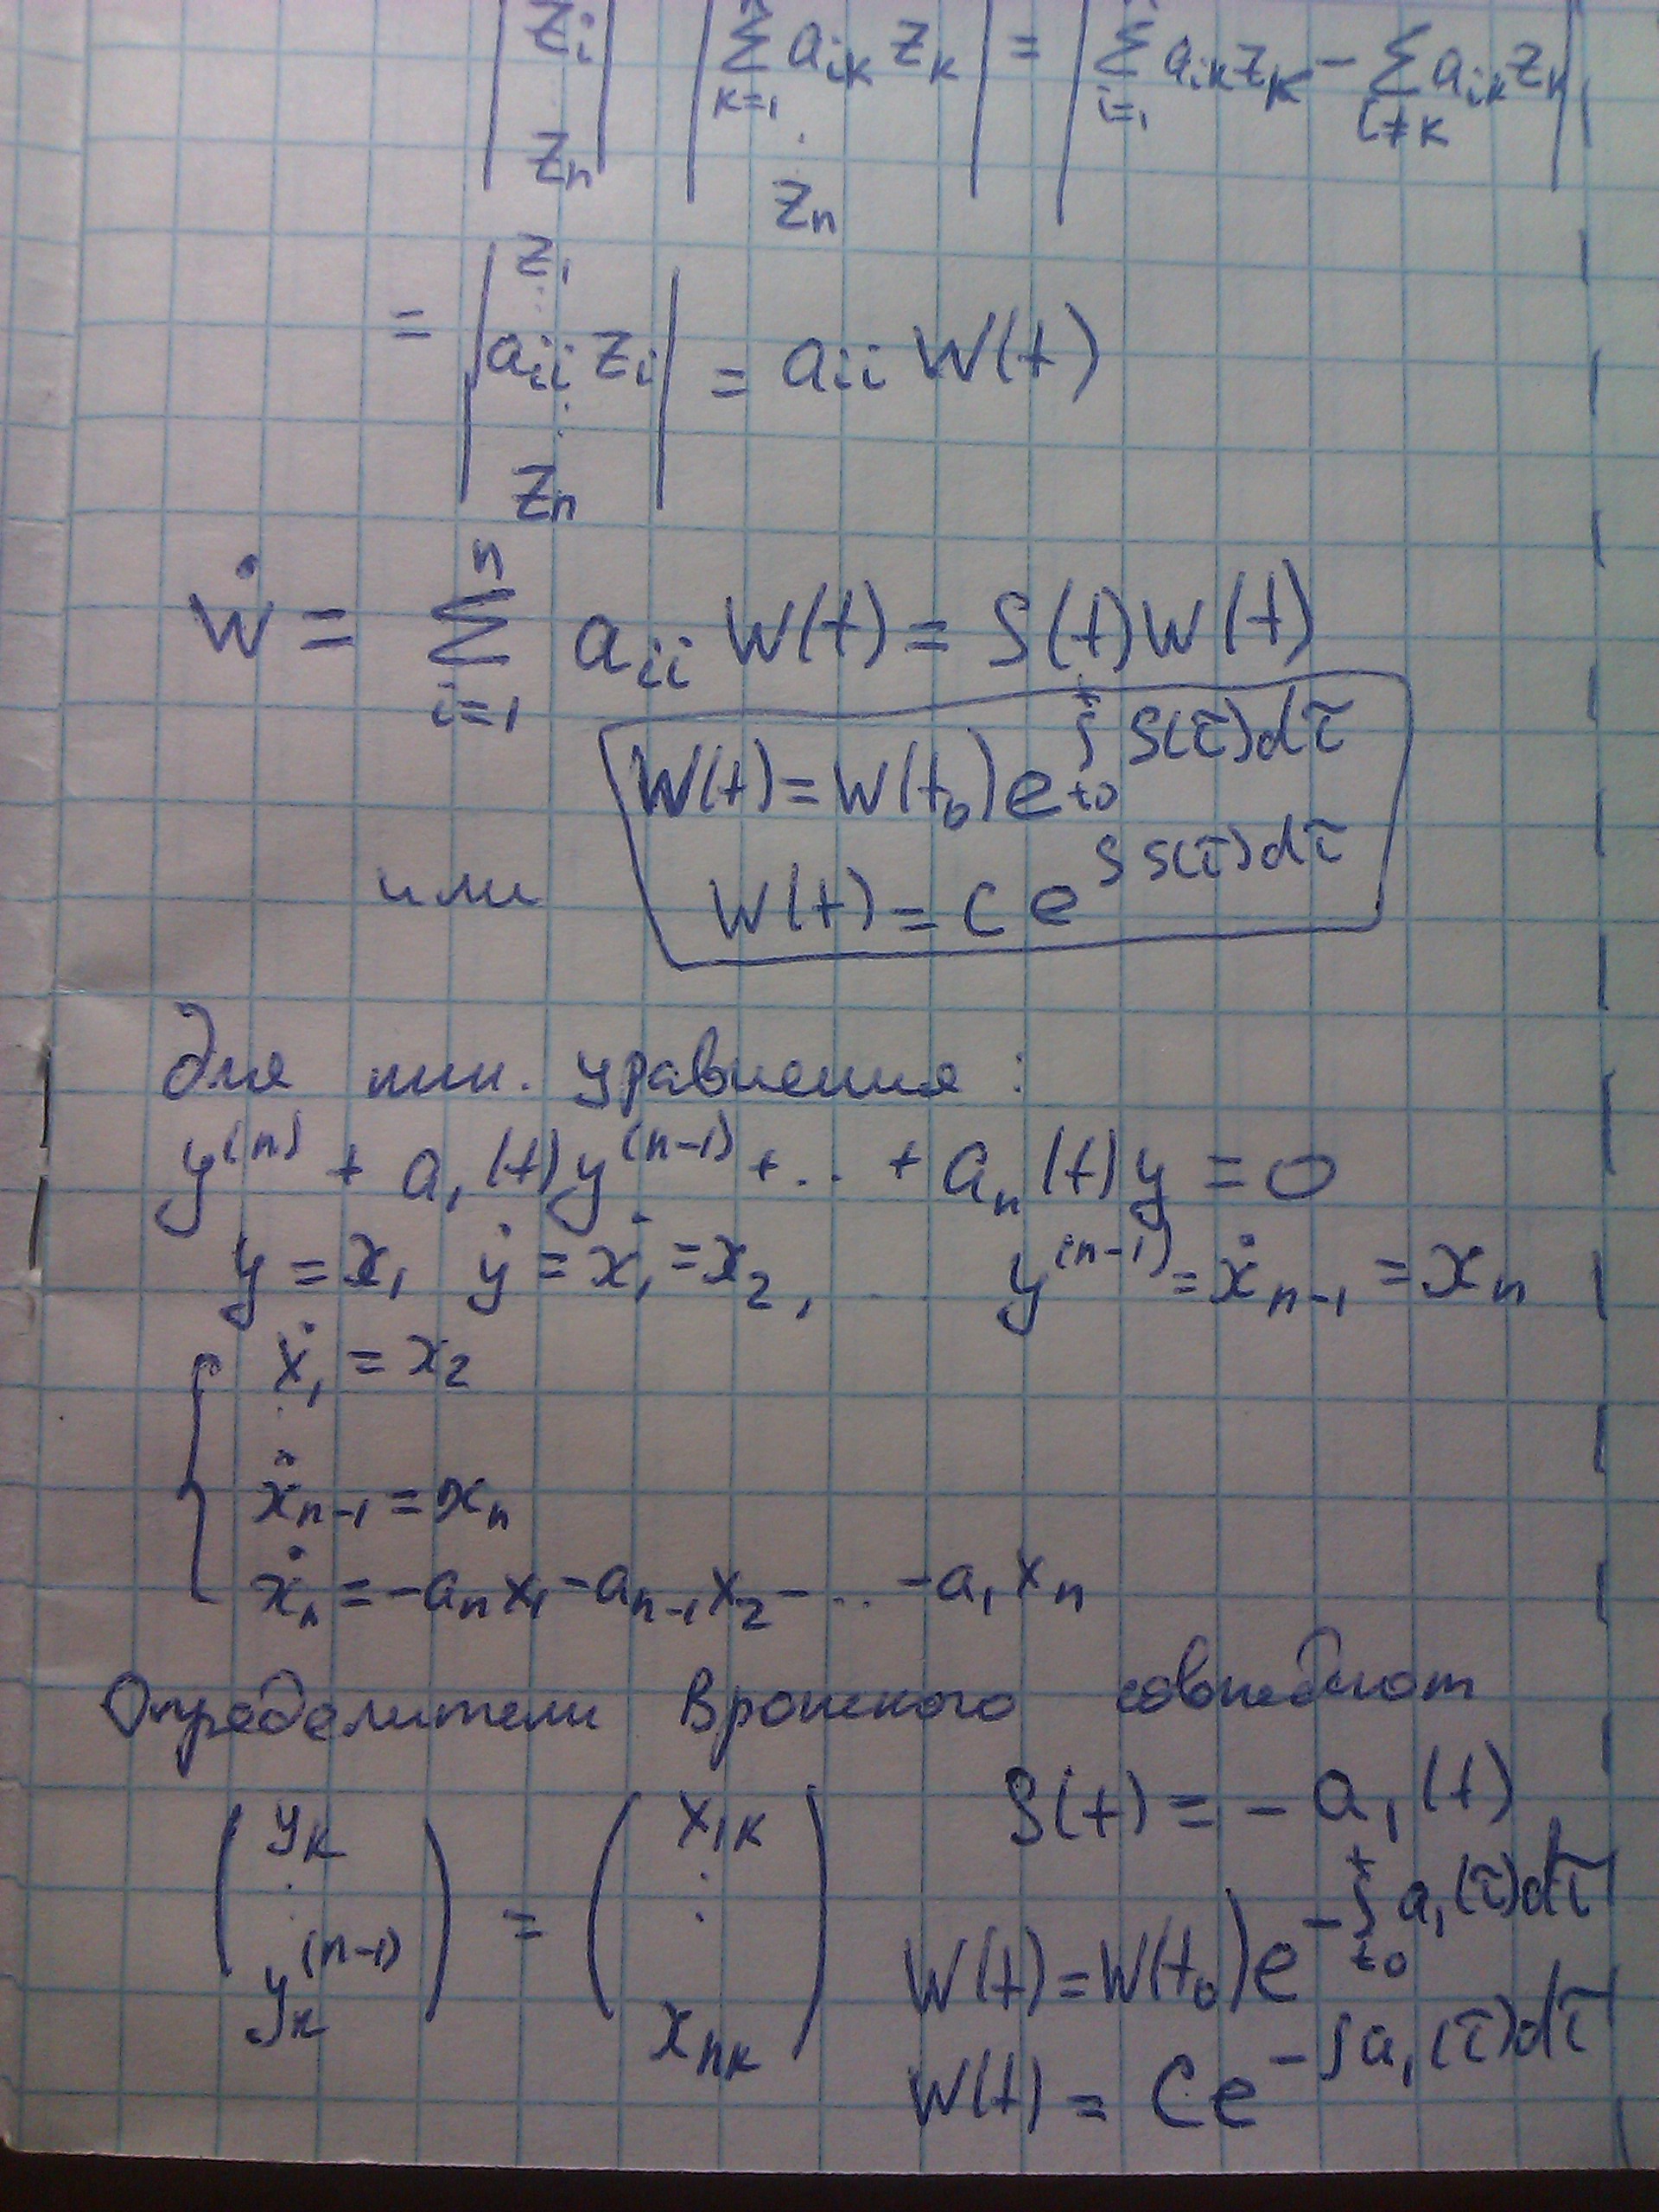 | zi ⋮ zn | | ∑ k=1 aik zk ⋮ zn | = | ∑ i=1 aik zk − ∑ i≠k aik zk |
= | z1 ⋮ aii zi ⋮ zn | = aii W(t)
Ẇ = ∑ i=1 n aii W(t) = S(t)W(t)
W(t) = W(t0) e^∫t0 t S(τ)dτ
или W(t) = C e^∫S(τ)dτ
Для лин. уравнения:
y^(n) + a1(t)y^(n-1) + ... + an(t)y = 0
y = x1 ẏ = ẋ1 = x2, ... y^(n-1) = ẋn-1 = xn
{ ẋ1 = x2
ẋn-1 = xn
ẋn = -an x1 - an-1 x2 - ... - a1 xn
Определители Вронского совпадают
( yk ⋮ yk^(n-1) ) = ( x1k ⋮ xnk )
S(t) = - a1(t)
W(t) = W(t0) e^-∫t0 t a1(τ)dτ
W(t) = C e^-∫a1(τ)dτ